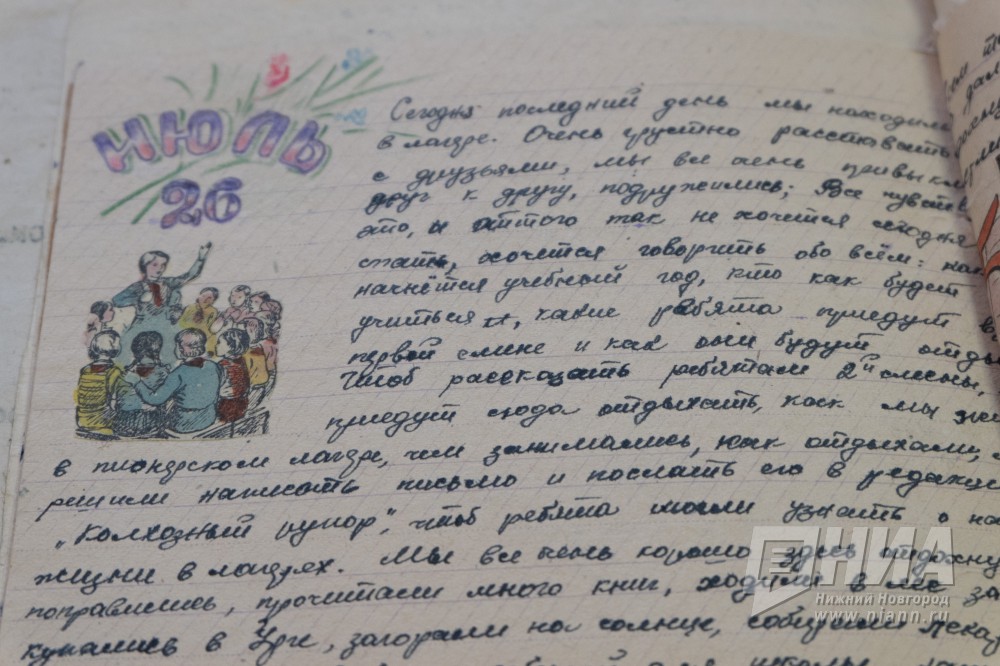 ИЮЛЬ
26
Сегодня последний день мы находим
в лагере. Очень грустно расставать
с друзьями, мы все очень привыкли
друг к другу, подружились; Все чувств
это, и оттого так не хочется сегодня
спать, хочется говорить обо всём: как
начнётся учебный год, кто как будет
учиться и, какие ребята приедут в
первой смене и как они будут отды
Чтоб рассказать ребятам 2й смены,
приедут сюда отдыхать, как мы жи
в пионерском лагере, чем занимались, как отдыхали,
решили написать письмо и послать его в редакци
„Колхозный рупор", чтоб ребята могли узнать о на
жизни в лагерях. Мы все очень хорошо здесь отдохну
поправились, прочитали много книг, ходили в лес за
купались в Урге, загорали на солнце, собирали лека
НИА
Нижний Новгород
www.niann.ru